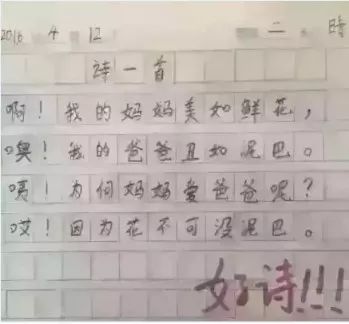 2016 4 12 二 時
诗一首
啊！我的妈妈美如鲜花，
噢！我的爸爸丑如泥巴。
咦！为何妈妈爱爸爸呢？
哎！因为花不可没泥巴。
好诗！！！